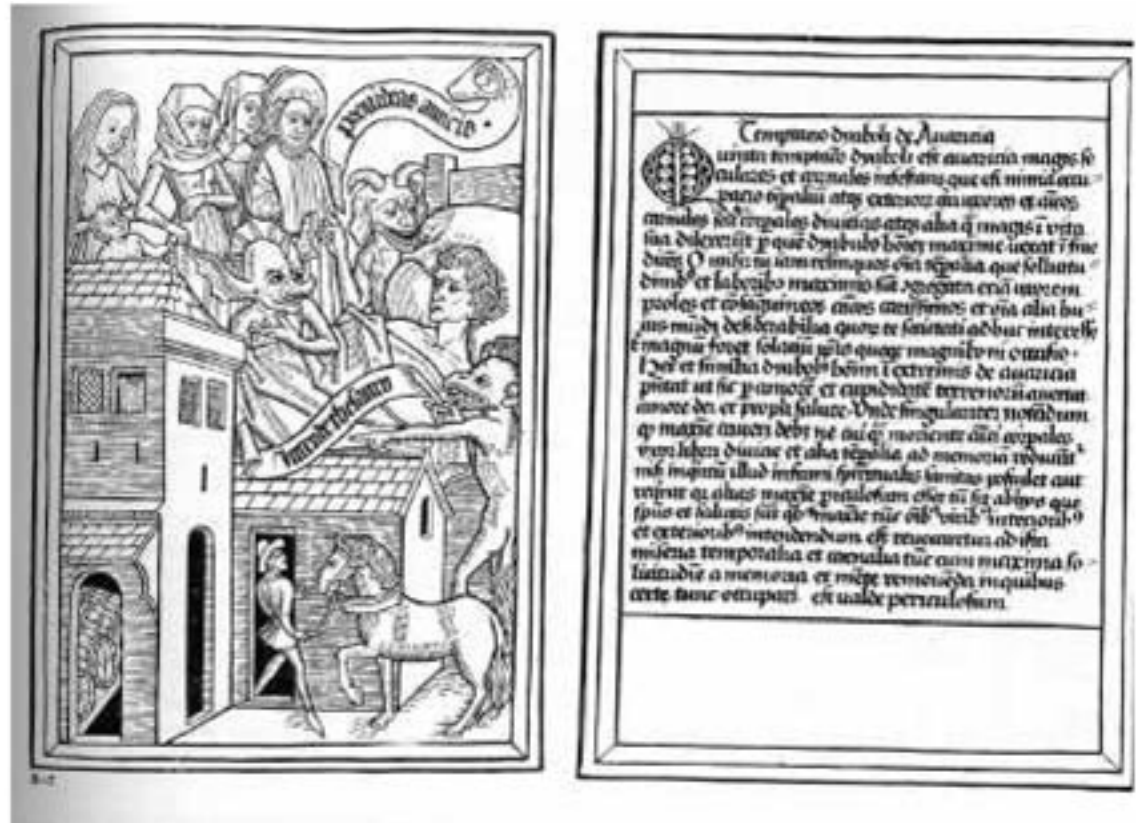 Provideas amicis
Intende thesauro
Temptatio dyaboli de Avaricia
Quinta temptatio dyaboli est avaricia magis se
culares et carnales infestans que est nimia occu-
pacio tpaliũ atqȝ exteriorũ circa uxores et amicos
carnales seu corpales divicias atqȝ alia q̃ magis ĩ vita
sua dilexerũt p que dyabolus hoĩem maxime vexat ĩ fine
dicẽs O miser tu iam relinquis oĩa tpalia que sollicitu-
dinibꝰ et laboribꝰ maximis sũt ogregata eciã uxorem
proles et cõsaguineos amicos carissimos et oĩa alia hu-
ius mũdi desiderabilia quorũ te societati adhuc interesse
magnũ foret solaciũ
Hec et similia dyabolꝰ hoĩni ĩ extremis de avaricia
pñtat ut sic p amorẽ et cupiditatẽ terrenorũ avertat
amore dei et propria salute Unde singulariter notãdum
q maxĩe caveri debȝ ne cuiqȝ morienti amici corpales
uxor liberi divicie et alia tpalia ad memoriã reducãtꝰ
nisi inquãtũ illud infirmi spiritualis sanitas postulet aut
requirat qꝛ alias maxĩe periculosum esset
et exterioribꝰ intendendum est revocaretur ad ista
misera temporalia et carnalia tũc cum maxima so-
licitudĩe a memoria et mẽte removẽda in quibus
certe tunc occupari est valde periculosum